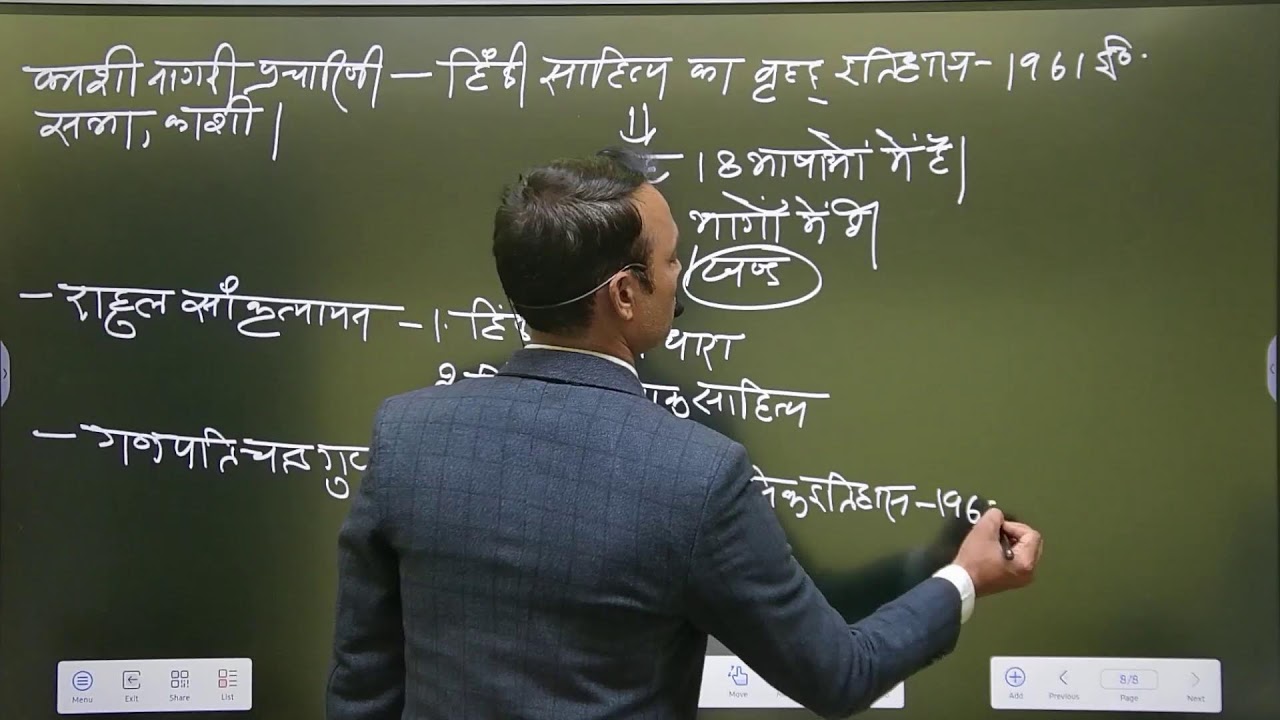 काशी नागरी प्रचारिणी – हिंदी साहित्य का वृहद् इतिहास - 1961 ई०
सभा, काशी।
18 भाषाओं में है।
भागों में भी
खण्ड
– राहुल सांकृत्यायन – 1. हिं धारा
2. साहित्य
– गणपतिचन्द्र गुप्
इतिहास – 196
Menu Exit Share List Move Add Previous 8/8 Page Next